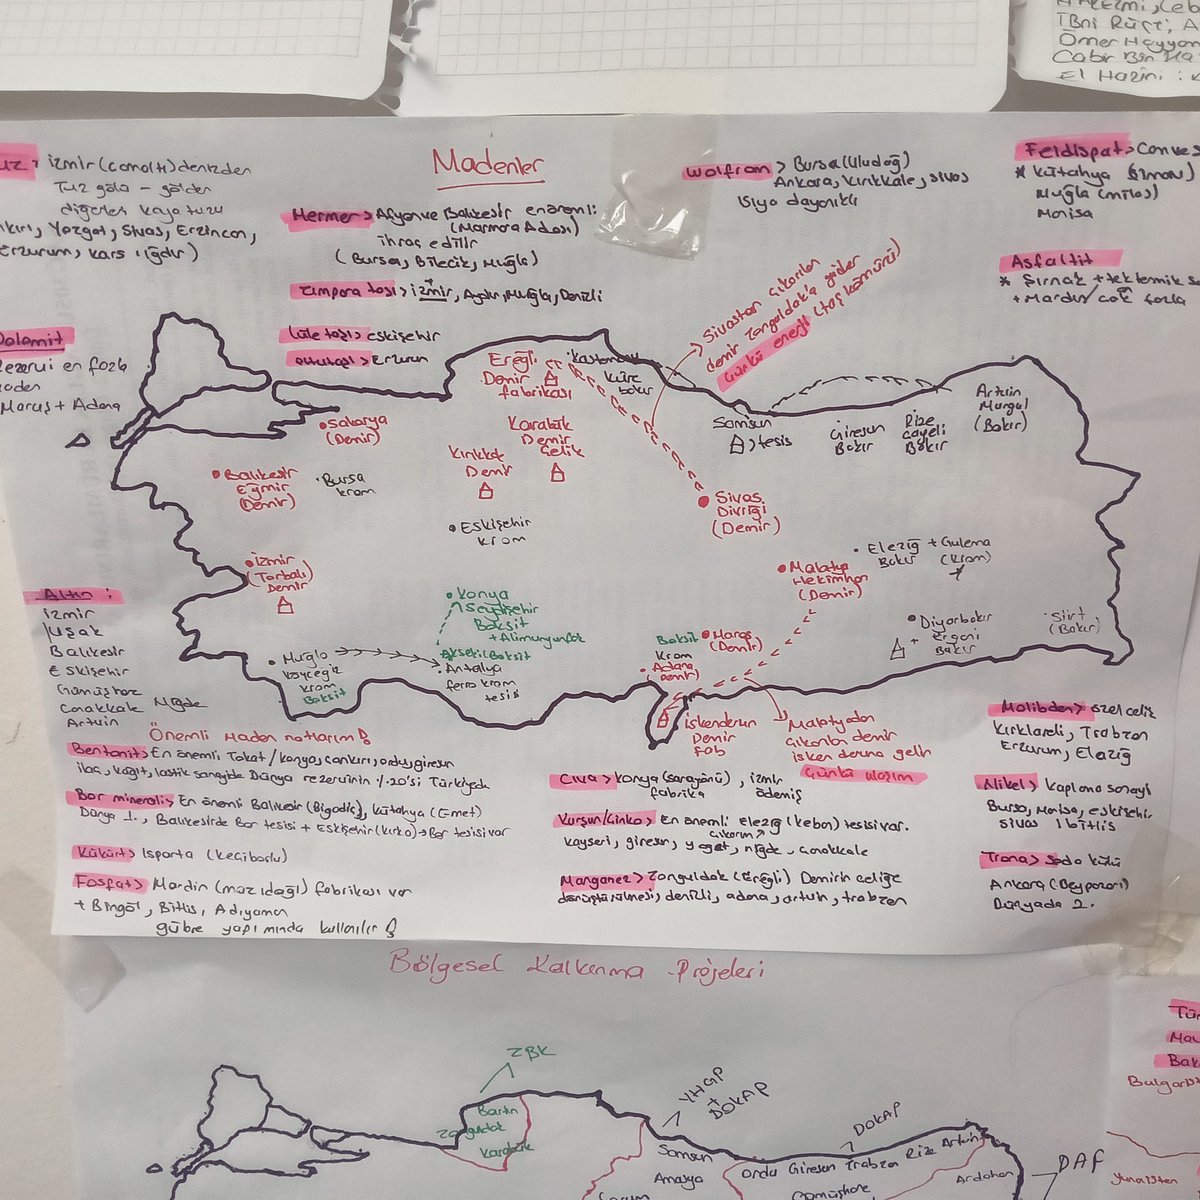 İbni Rüşt, A
Ömer Hayyam
Cabir Bin Ha
El Hazini : K
Madenler
uz> izmir (Çamaltı) denizden
Tuz gölü - gölden
diğerleri kaya tuzu
nkırı, Yozgat, Sivas, Erzincan,
Erzurum, Kars ığdır)
Mermer> Afyon ve Balıkesir en önemli:
(Marmara Adası)
ihraç edilir
(Bursa, Bilecik, Muğla)
Zımpara taşı> izmir, Aydın, Muğla, Denizli
Lüle taşı> Eskişehir
Oltu taşı> Erzurum
Wolfram > Bursa (Uludağ)
Ankara, Kırıkkale, Sivas
Isıya dayanıklı
Feldispat> Canves
* Kütahya (Simav)
Muğla (milas)
Manisa
Asfaltit
* Şırnak + tektonik s
+ Mardin çok fazla
Dolomit
Rezervi en fazla
maden
Maraş + Adana
Sivastan çıkarılan
demir Zonguldak'a gider
Çünkü enerji (taş kömürü)
Ereğli
Demir
fabrikası
Kastamonu
Küre
bakır
Sakarya
(Demir)
Karabük
Demir
Çelik
Kırıkkale
Demir
Balıkesir
Eymir
(Demir)
Bursa
krom
Eskişehir
krom
Samsun
, tesis
Giresun
Bakır
Rize
Çayeli
Bakır
Artvin
Murgul
(Bakır)
Sivas
Divriği
(Demir)
izmir
(Torbalı)
Demir
Malatya
Hekimhan
(Demir)
Elazığ + Guleman
Bakır (Krom)
Konya
Seydişehir
Boksit
+ Alüminyum fab
Akseki (Boksit)
Antalya
ferro krom
tesis
Muğla
Köyceğiz
krom
Boksit
Boksit
Krom
Adana
(Demir)
Maraş
(Demir)
Diyarbakır
+ Ergani
Bakır
Siirt
(Bakır)
iskenderun
Demir
Fab
Malatyadan
çıkarılan demir
iskenderuna gelir
Çünkü ulaşım
Altın :
izmir
Uşak
Balıkesir
Eskişehir
Gümüşhane
Çanakkale Niğde
Artvin
Önemli Maden notlarım !
Bentonit> En önemli Tokat / konya, çankırı, ordu, giresun
ilaç, kağıt, lastik sanayide Dünya rezervinin %20'si Türkiyede
Bor minerali> En önemli Balıkesir (Bigadiç), Kütahya (Emet)
Dünya 1. , Balıkesirde Bor tesisi + Eskişehir (kırka) → Bor tesisi var
Kükürt> Isparta (Keçiborlu)
Fosfat> Mardin (mazıdağı) fabrikası var
+ Bingöl, Bitlis, Adıyaman
gübre yapımında kullanılır
Civa > Konya (sarayönü), izmir
fabrika ödemiş
Kurşun/Çinko> En önemli Elazığ (keban) tesisi var.
çıkarım
kayseri, giresun, yozgat, niğde, Çanakkale
Manganez> Zonguldak (Ereğli) Demirin çeliğe
dönüştürülmesi, denizli, adana, artvin, trabzon
Molibden> özel çelik
Kırklareli, Trabzon
Erzurum, Elazığ
Nikel> Kaplama sanayi
Bursa, Manisa, eskişehir
sivas bitlis
Trona> Soda külü
Ankara (Beypazarı)
Dünyada 2.
Bölgesel Kalkınma Projeleri
ZBK
Bartın
Zonguldak
Karabük
YHGP
+
DOKAP
DOKAP
Samsun
Amasya
Çorum
Ordu Giresun Trabzon Rize Artvin
Gümüşhane
Ardahan
DAP
Tür
Mav
Bak
Bulgaris
Yunanistan